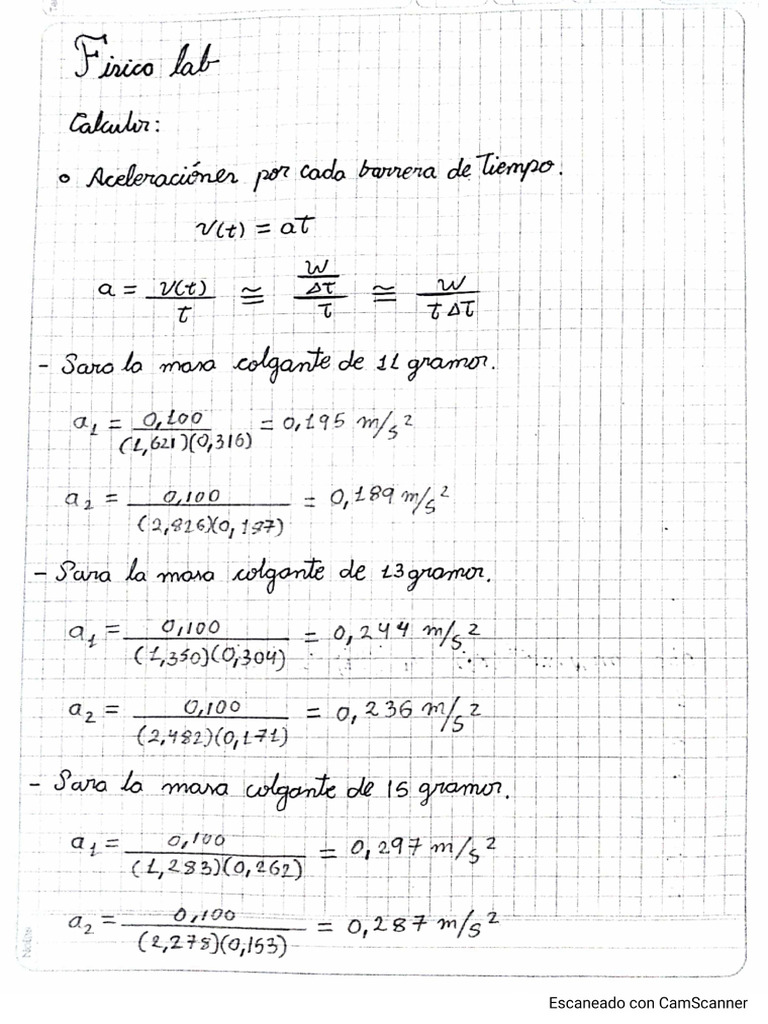 Físico lab
Calculir:
o Aceleraciónes por cada barrera de Tiempo.
v(t) = at
a = v(t)/t ≅ (w/Δt)/t ≅ w/(t Δt)
- Para la masa colgante de 11 gramos.
a₁ = 0,100/((1,621)(0,316)) = 0,195 m/s²
a₂ = 0,100/((2,826)(0,187)) = 0,189 m/s²
- Para la masa colgante de 13 gramos.
a₁ = 0,100/((1,350)(0,304)) = 0,244 m/s²
a₂ = 0,100/((2,482)(0,171)) = 0,236 m/s²
- Para la masa colgante de 15 gramos.
a₁ = 0,100/((1,283)(0,262)) = 0,297 m/s²
a₂ = 0,100/((2,278)(0,153)) = 0,287 m/s²
Escaneado con CamScanner